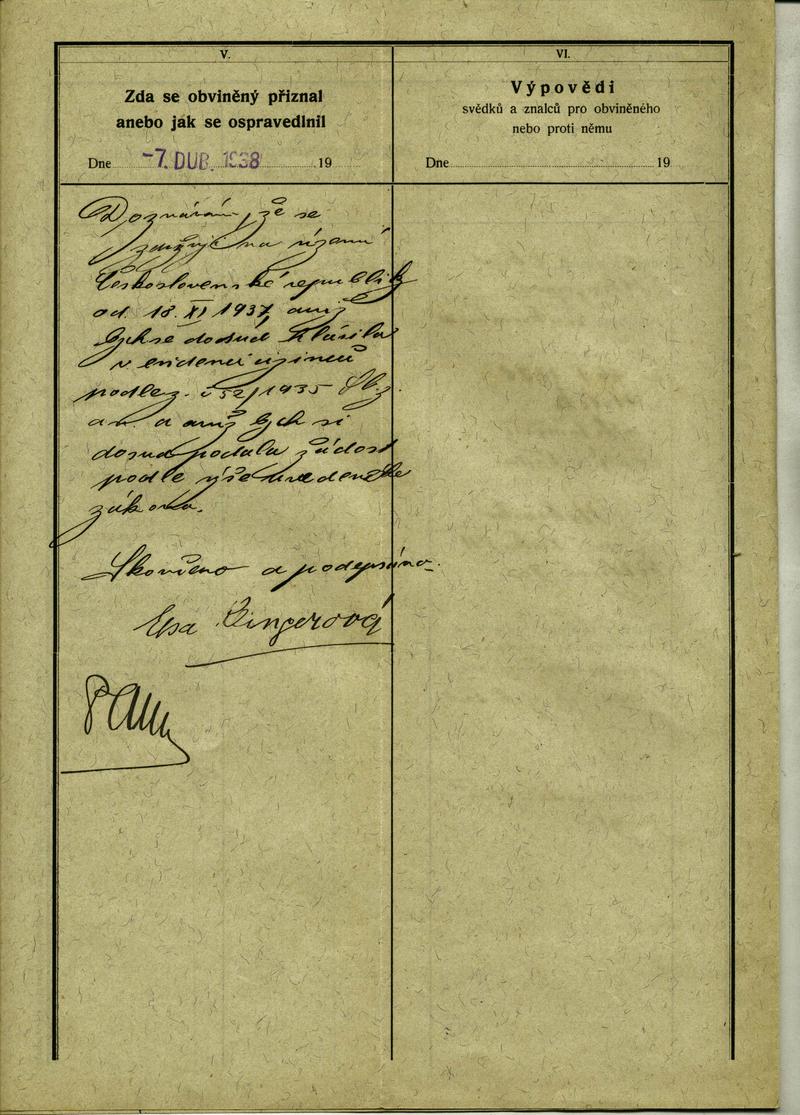 V.
Zda se obviněný přiznal
anebo jak se ospravedlnil
Dne -7. DUB. 1938 19
Doznávám, že se
zdržuji na území
Československé republiky
od 18. XI 1937, aniž
bych se dosud hlásila
v evidenci cizinců
podle z. č 52/1935 Sb z
a n. a aniž bych si
dosud podala žádost
podle výše uvedeného
zákona.
Skončeno a podepsáno.
Elsa Singerová
VI.
Výpovědi
svědků a znalců pro obviněného
nebo proti němu
Dne 19